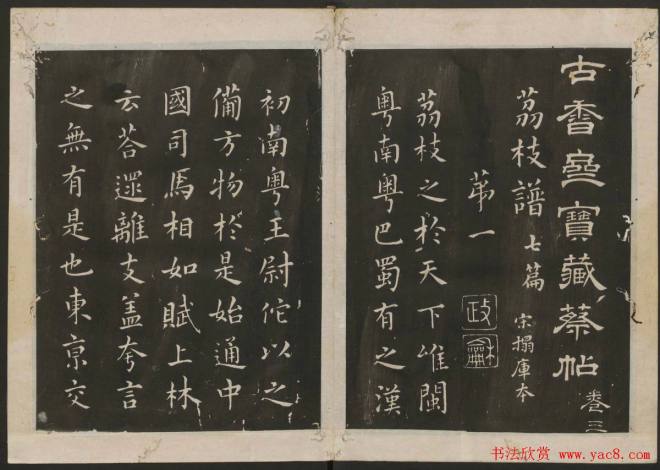 古香齋寶藏蔡帖 卷三
荔枝譜 七篇 宋搨庫本
第一
政龢
荔枝之於天下唯閩
粵南粵巴蜀有之漢
初南粵王尉佗以之
備方物於是始通中
國司馬相如賦上林
云荅遝離支盖夸言
之無有是也東京交
书法欣赏 www.yac8.com